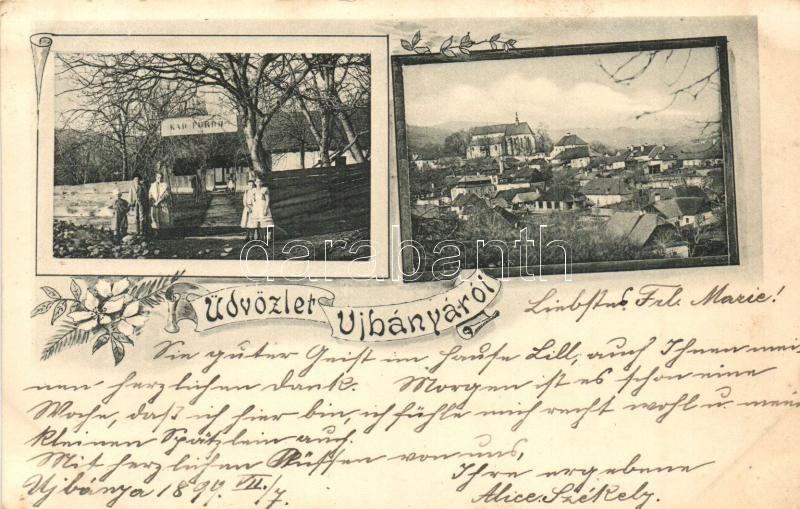 Üdvözlet
Ujbányáról
darabanth
Liebstes Frl. Marie!
Sie guter Geist im Hause Lill, auch Ihnen mei-
nen herzlichen Dank. Morgen ist es schon eine
Woche, daß ich hier bin, ich fühle mich recht wohl u. mein
kleinen Spätzlein auch.
Mit herzlichen Küssen von uns,
Ihre ergebene
Ujbánya 1899. VII./7.
Alice Székely.